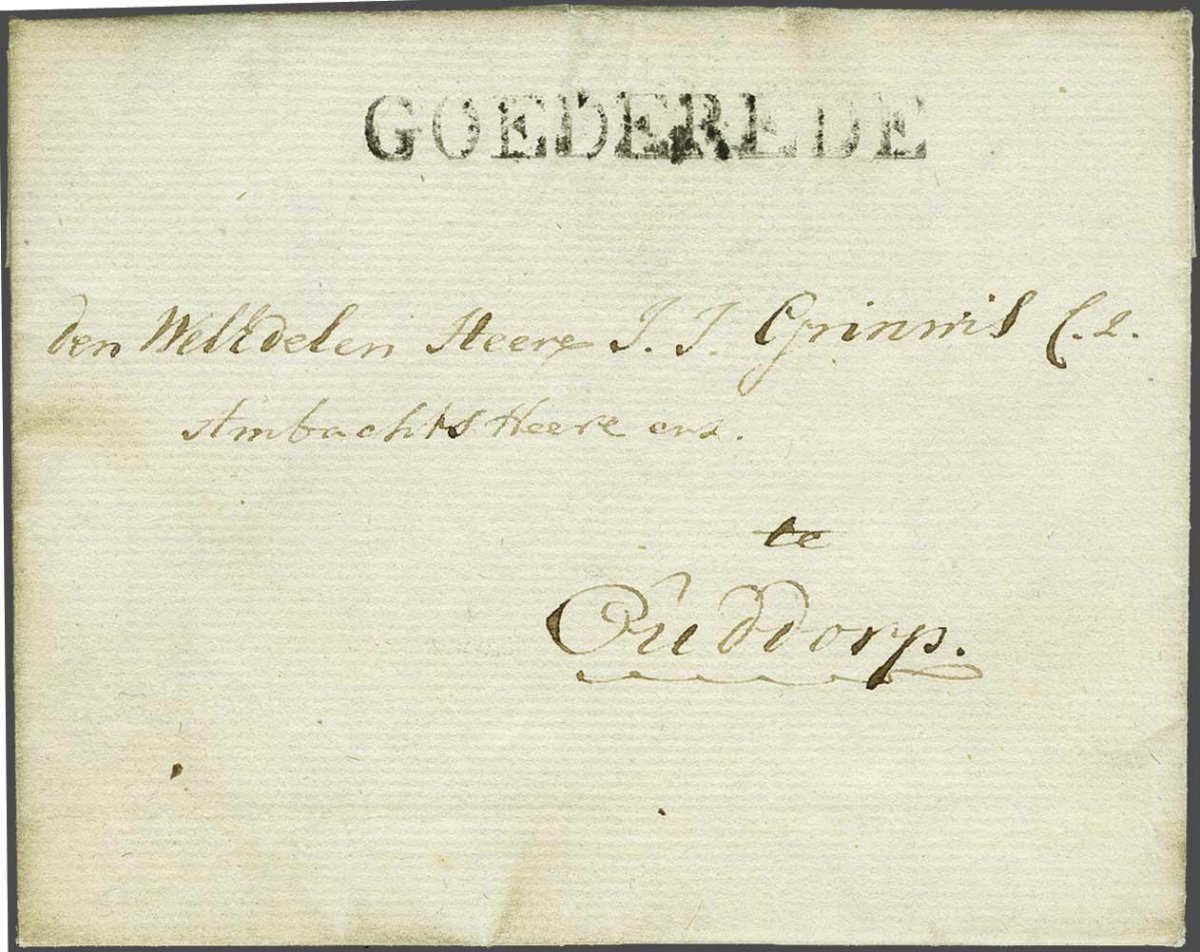 GOEDEREDE
den WelEdelen Heere J. J. Grinwis C.z.
Ambachts Heere enz.
te
Ouddorp.